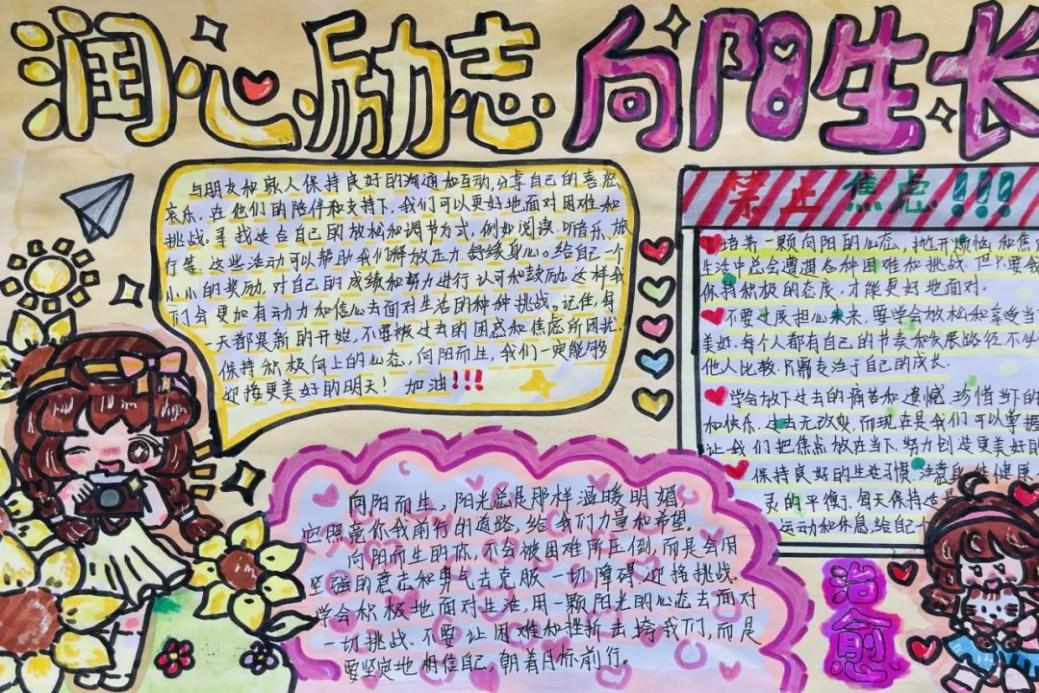 润心励志 向阳生长
与朋友和家人保持良好的沟通和互动,分享自己的喜怒
哀乐.在他们的陪伴和支持下,我们可以更好地面对困难和
挑战。寻找适合自己的放松和调节方式,例如阅读.听音乐.旅
行等.这些活动可以帮助我们释放压力.舒缓身心。给自己一个
小小的奖励,对自己的成绩和努力进行认可和鼓励.这样我
们会更加有动力和信心去面对生活的种种挑战。记住,每
一天都是新的开始,不要被过去的困惑和焦虑所困扰.
保持积极向上的心态,向阳而生,我们一定能够
迎接更美好的明天!加油!!!
禁止焦虑!!!
培养一颗向阳的心态,抛开烦恼和焦
生活中总会遭遇各种困难和挑战.但只要我
保持积极的态度.才能更好地面对.
不要过度担心未来,要学会放松和享受当
美好.每个人都有自己的节奏和发展路径不必
他人比较.只需专注于自己的成长.
学会放下过去的痛苦和遗憾.珍惜当下的
和快乐.过去无改变,而现在是我们可以掌握
让我们把焦点放在当下.努力创造更美好的
保持良好的生活习惯.注意身体健康
灵的平衡,每天保持适
运动和休息,给自己
向阳而生,阳光总是那样温暖明媚,
它照亮你我前行的道路,给我们力量和希望。
向阳而生的你,不会被困难所压倒,而是会用
坚强的意志和勇气去克服一切障碍.迎接挑战.
学会积极地面对生活,用一颗阳光的心态去面对
一切挑战.不要让困难和挫折击垮我们,而是
要坚定地相信自己,朝着目标前行。
治愈